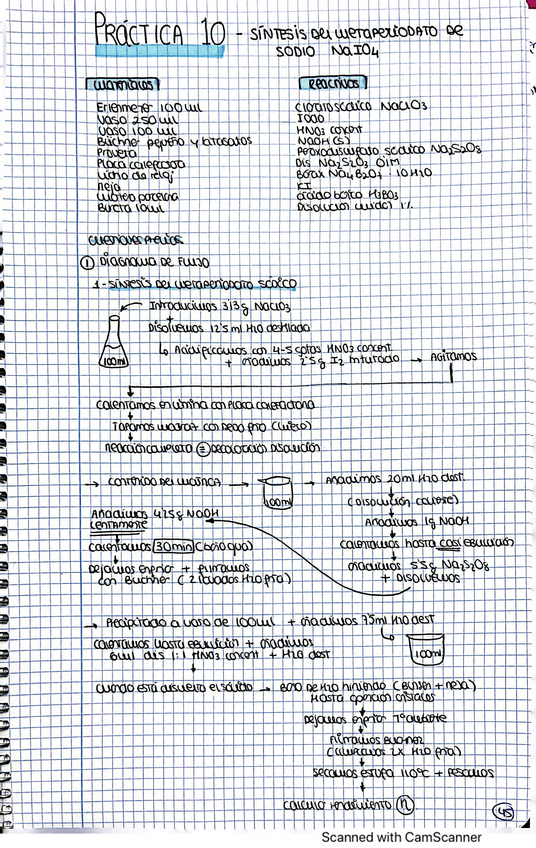 PRÁCTICA 10 - SÍNTESIS DEL METAPERIODATO DE
SODIO NaIO4
MATERIALES
REACTIVOS
Erlenmeyer 100ml
Vaso 250ml
Vaso 100ml
Büchner pequeño y kitasatos
Probeta
Placa calefactora
Vidrio de reloj
Reja
Mortero porcelana
Bureta 10ml
Clorato sódico NaClO3
Iodo
HNO3 concent
NaOH (s)
Peroxodisulfato sódico Na2S2O8
Dis Na2S2O3 0'1M
Bórax Na2B4O7 · 10H2O
KI
Ácido bórico H3BO3
Disolución almidón 1%
CUESTIONES PREVIAS
1 DIAGRAMA DE FLUJO
1-SÍNTESIS DEL METAPERIODATO SÓDICO
Introducimos 3'13g NaClO3
+
Disolvemos 12'5ml H2O destilada
Acidificamos con 4-5 gotas HNO3 concent.
+ añadimos 2'5g I2 triturado → AGITAMOS
100ml
Calentamos en vitrina con placa calefactora
Tapamos matraz con vaso frío (hielo)
Reacción completa = decoloración disolución
→ Contenido del matraz → 100ml → Añadimos 20ml H2O dest.
(Disolución caliente)
Añadimos 1g NaOH
Calentamos hasta casi ebullición
Añadimos 5'5g Na2S2O8
+ Disolvemos
Añadimos 4'25g NaOH
LENTAMENTE
Calentamos 30min (baño agua)
Dejamos enfriar + filtramos
con Büchner (2 lavados H2O fría)
→ Precipitado a vaso de 100ml + añadimos 75ml H2O dest
100ml
Calentamos hasta ebullición + añadimos
6ml dis 1:1 HNO3 concent + H2O dest
Cuando está disuelto el sólido → Baño de H2O hirviendo (Bunsen + reja)
Hasta aparición cristales
Dejamos enfriar Tº ambiente
Filtramos Büchner
(Lavamos 2X H2O fría)
Secamos estufa 110ºC + Pesamos
Cálculo rendimiento (η)
45
Scanned with CamScanner